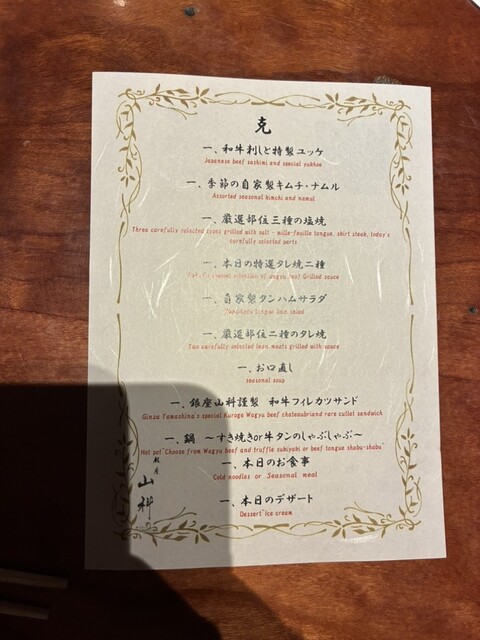 克
一、和牛刺しと特製ユッケ
Japanese beef sashimi and special yukhoe
一、季節の自家製キムチ・ナムル
Assorted seasonal kimchi and namul
一、厳選部位三種の塩焼
Three carefully selected types grilled with salt - mille-feuille tongue, skirt steak, today's
carefully selected parts
一、本日の特選タレ焼二種
special selection of wagyu beef Grilled sauce
一、自家製タンハムサラダ
tongue ham salad
一、厳選部位二種のタレ焼
Two carefully selected lean meats grilled with sauce
一、お口直し
seasonal soup
一、銀座山科謹製 和牛フィレカツサンド
Ginza Yamashina's special Kuroge Wagyu beef chateaubriand rare cutlet sandwich
一、鍋 ～すき焼きor牛タンのしゃぶしゃぶ～
Hot pot"Choose from Wagyu beef and truffle sukiyaki or beef tongue shabu-shabu"
一、本日のお食事
Cold noodles or Seasonal meal
一、本日のデザート
Dessert"Ice cream
銀座
山科